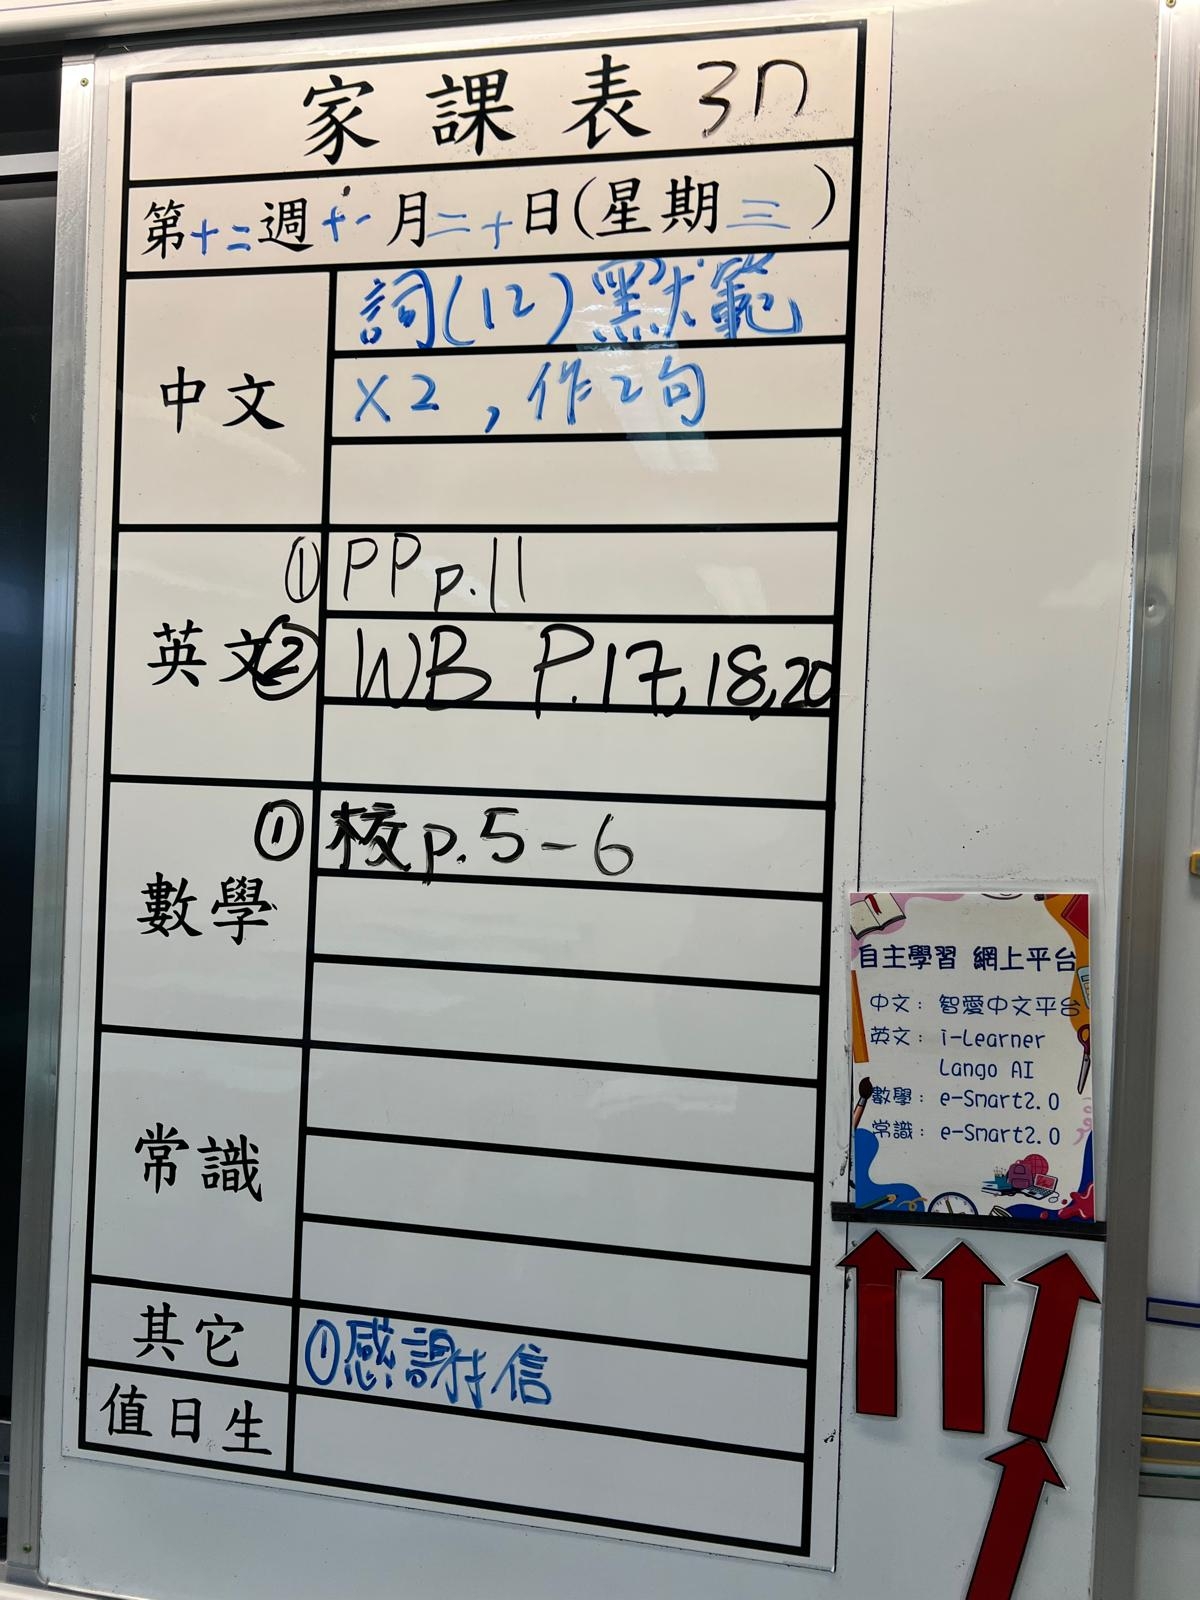 家課表 3D
第十二週十一月二十日(星期三)
中文
詞(12)默範
X2，作2句
英文
① PP p.11
② WB P.17,18,20
數學
① 校p.5-6
常識
其它
①感謝信
值日生
自主學習 網上平台
中文：智愛中文平台
英文：i-Learner
Lango AI
數學：e-Smart2.0
常識：e-Smart2.0